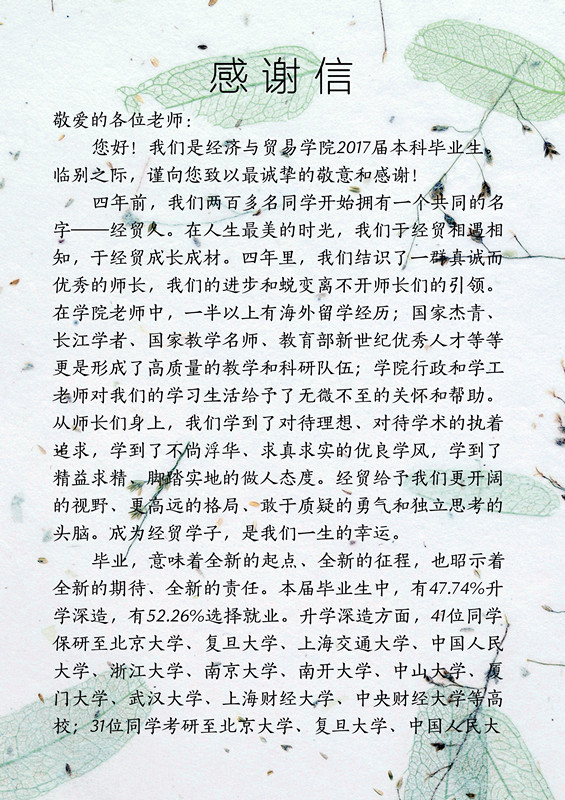 感谢信
敬爱的各位老师：
您好！我们是经济与贸易学院2017届本科毕业生，
临别之际，谨向您致以最诚挚的敬意和感谢！
四年前，我们两百多名同学开始拥有一个共同的名
字——经贸人。在人生最美的时光，我们于经贸相遇相
知，于经贸成长成材。四年里，我们结识了一群真诚而
优秀的师长，我们的进步和蜕变离不开师长们的引领。
在学院老师中，一半以上有海外留学经历；国家杰青、
长江学者、国家教学名师、教育部新世纪优秀人才等等
更是形成了高质量的教学和科研队伍；学院行政和学工
老师对我们的学习生活给予了无微不至的关怀和帮助。
从师长们身上，我们学到了对待理想、对待学术的执着
追求，学到了不尚浮华、求真求实的优良学风，学到了
精益求精、脚踏实地的做人态度。经贸给予我们更开阔
的视野、更高远的格局、敢于质疑的勇气和独立思考的
头脑。成为经贸学子，是我们一生的幸运。
毕业，意味着全新的起点、全新的征程，也昭示着
全新的期待、全新的责任。本届毕业生中，有47.74%升
学深造，有52.26%选择就业。升学深造方面，41位同学
保研至北京大学、复旦大学、上海交通大学、中国人民
大学、浙江大学、南京大学、南开大学、中山大学、厦
门大学、武汉大学、上海财经大学、中央财经大学等高
校；31位同学考研至北京大学、复旦大学、中国人民大